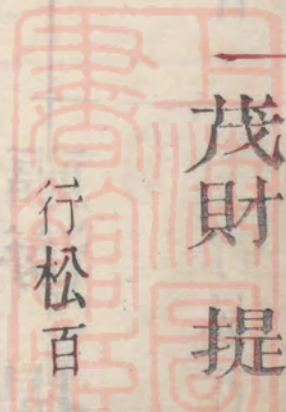 茂財 提
行松百